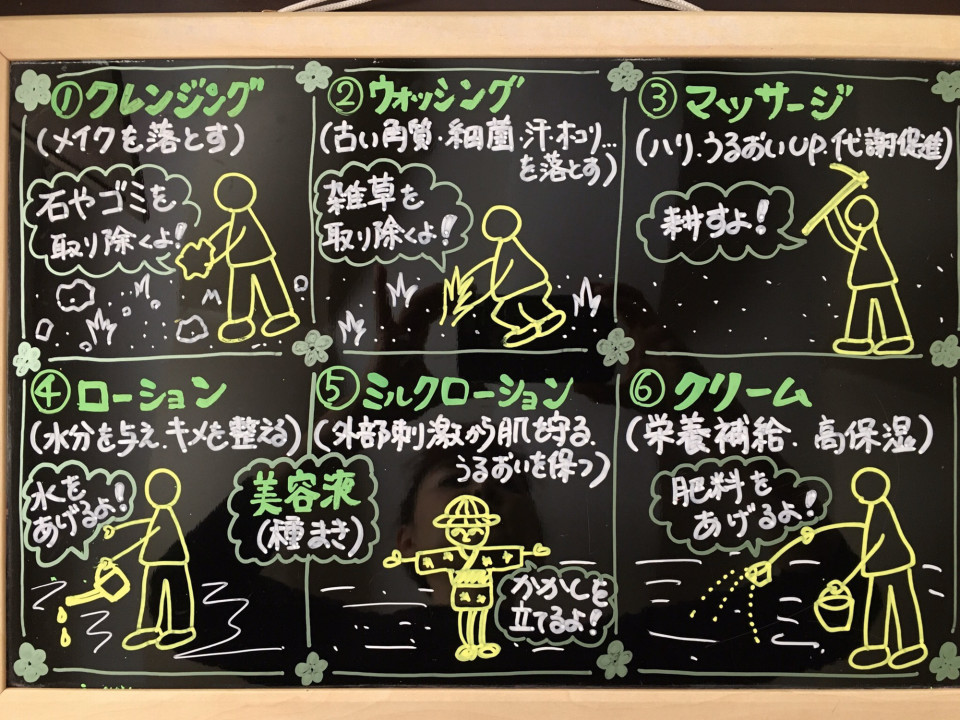 ①クレンジング
(メイクを落とす)
石やゴミを
取り除くよ!
②ウォッシング
(古い角質・細菌・汗・ホコリ…
を落とす)
雑草を
取り除くよ!
③マッサージ
(ハリ・うるおいUP・代謝促進)
耕すよ!
④ローション
(水分を与え、キメを整える)
水を
あげるよ!
美容液
(種まき)
⑤ミルクローション
(外部刺激から肌を守る、
うるおいを保つ)
かかしを
立てるよ!
⑥クリーム
(栄養補給、高保湿)
肥料を
あげるよ!